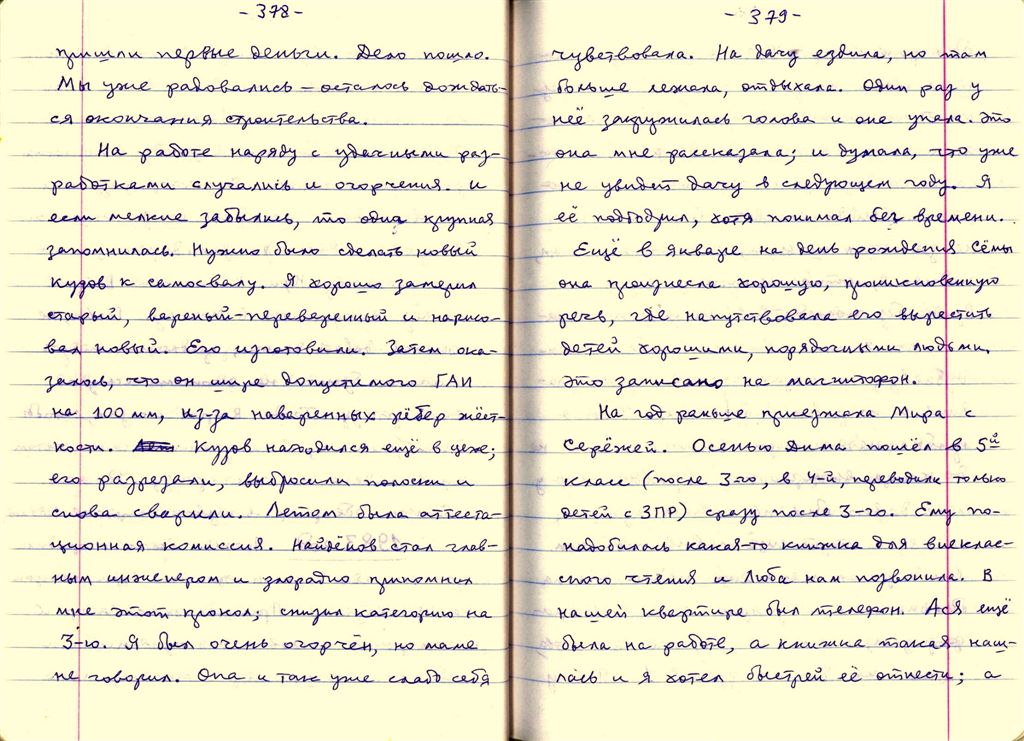 - 378 -
пришли первые деньги. Дело пошло.
Мы уже радовались – осталось дождать-
ся окончания строительства.
На работе наряду с удачными раз-
работками случались и огорчения. И
если мелкие забылись, то одна крупная
запомнилась. Нужно было сделать новый
кузов к самосвалу. Я хорошо замерил
старый, вареный-переваренный и нарисо-
вал новый. Его изготовили. Затем ока-
залось, что он шире допустимого ГАИ
на 100 мм, из-за наваренных рёбер жёст-
кости. Кузов находился ещё в цехе;
его разрезали, выбросили полоски и
снова сварили. Летом была аттеста-
ционная комиссия. Найдёнов стал глав-
ным инженером и злорадно припомнил
мне этот прокол; снизил категорию на
3-ю. Я был очень огорчён, но маме
не говорил. Она и так уже слабо себя
- 379 -
чувствовала. На дачу ездила, но там
больше лежала, отдыхала. Один раз у
неё закружилась голова и она упала. Это
она мне рассказала; и думала, что уже
не увидит дачу в следующем году. Я
её подбодрил, хотя понимал без времени.
Ещё в январе на день рождения Сёмы
она произнесла хорошую, проникновенную
речь, где напутствовала его вырастить
детей хорошими, порядочными людьми.
Это записано на магнитофон.
На год раньше приезжала Мира с
Серёжей. Осенью Дима пошёл в 5й
класс (после 3-го, в 4-й, переводили только
детей с ЗПР) сразу после 3-го. Ему по-
надобилась какая-то книжка для внеклас-
сного чтения и Люба нам позвонила. В
нашей квартире был телефон. Ася ещё
была на работе, а книжка такая наш-
лась и я хотел быстрей её отнести; а